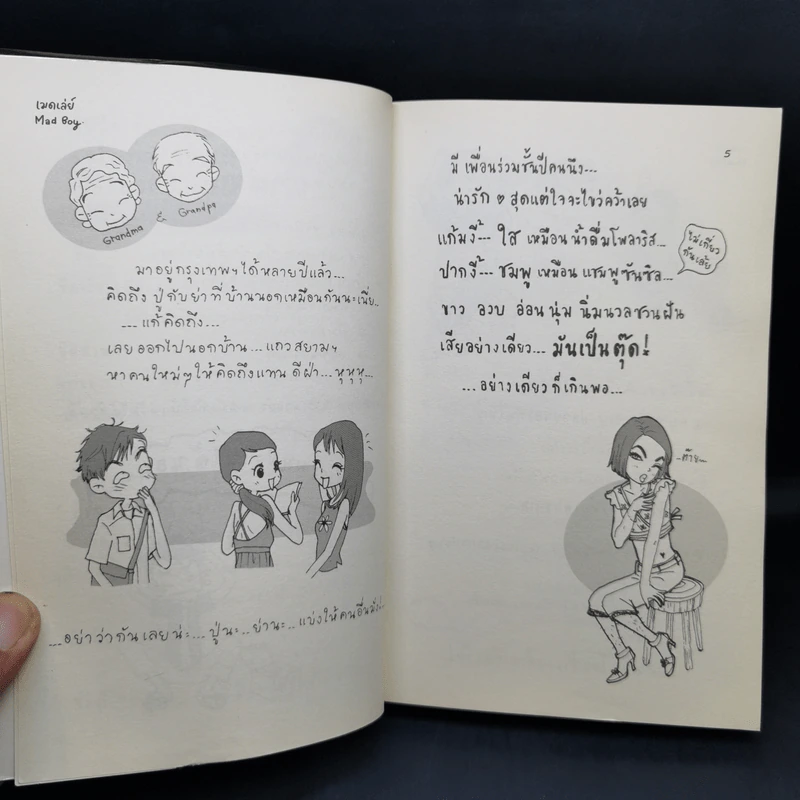 เมดเล่ย์
Mad Boy.
Grandma & Grandpa
มาอยู่กรุงเทพฯได้หลายปีแล้ว...
คิดถึง ปู่กับย่าที่บ้านนอกเหมือนกันนะเนี่ย..
...แก้คิดถึง...
เลยออกไปนอกบ้าน...แถวสยามฯ
หาคนใหม่ๆให้คิดถึงแทน ดีฝ่า...หุหุหุ...
...อย่าว่ากันเลยน่ะ...ปู่นะ..ย่านะ..แบ่งให้คนอื่นมั่ง!..
5
มี เพื่อนร่วมชั้นปีคนนึง...
น่ารัก ๑ สุดแต่ใจจะไขว่คว้าเลย
แก้มงี้... ใส เหมือนน้ำดื่มโพลาริส...
ไม่เกี่ยว
กันเล้ย
ปากงี้... ชมพู เหมือนแชมพูซันซิล...
ขาว อวบ อ่อนนุ่ม นิ่มนวลชวนฝัน
เสียอย่างเดียว... มันเป็นตุ๊ด!
...อย่างเดียวก็เกินพอ...
..ต๊าย...